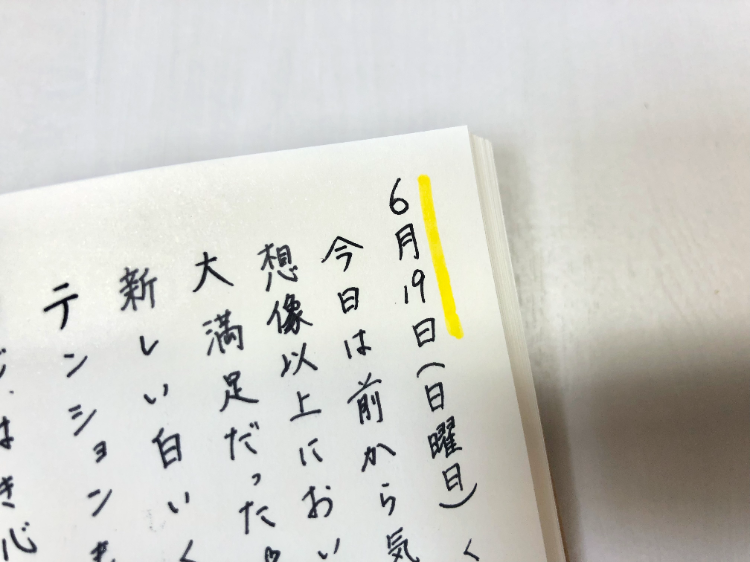 6月19日(日曜日)く
今日は前から気
想像以上においい
大満足だった
新しい白いく
テンションも
じはき心